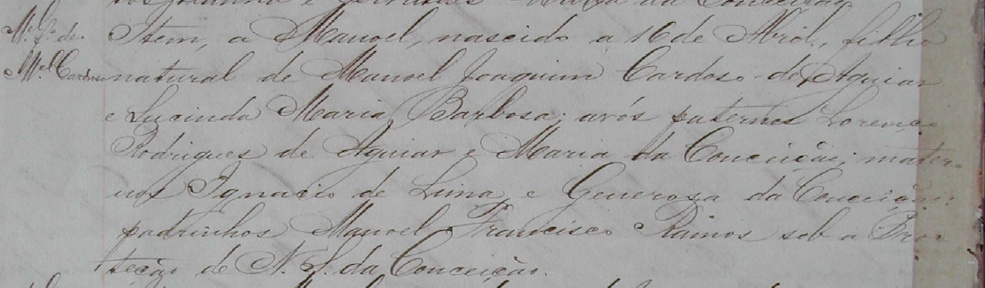 da Conceição
M.el f.º de Item, a Manoel, nascido a 16 de Abril, filho
M.el Cardoso natural de Manoel Joaquim Cardoso de Aguiar
e Lucinda Maria Barbosa; avós paternos Lorenço
Rodrigues de Aguiar e Maria da Conceição; mater-
nos Ignacio de Lima e Generosa da Conceição:
padrinhos Manoel Francisco Ramos sob a Pro-
teção de N. S. da Conceição.